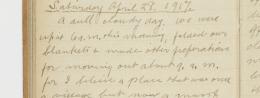 Saturday April 28, 1917
A dull cloudy day. We were
up at 6 a.m. this morning, folded our
blankets & made other preparations
for moving out about 9. a. m.
for I believe a place that was once
a village but now a